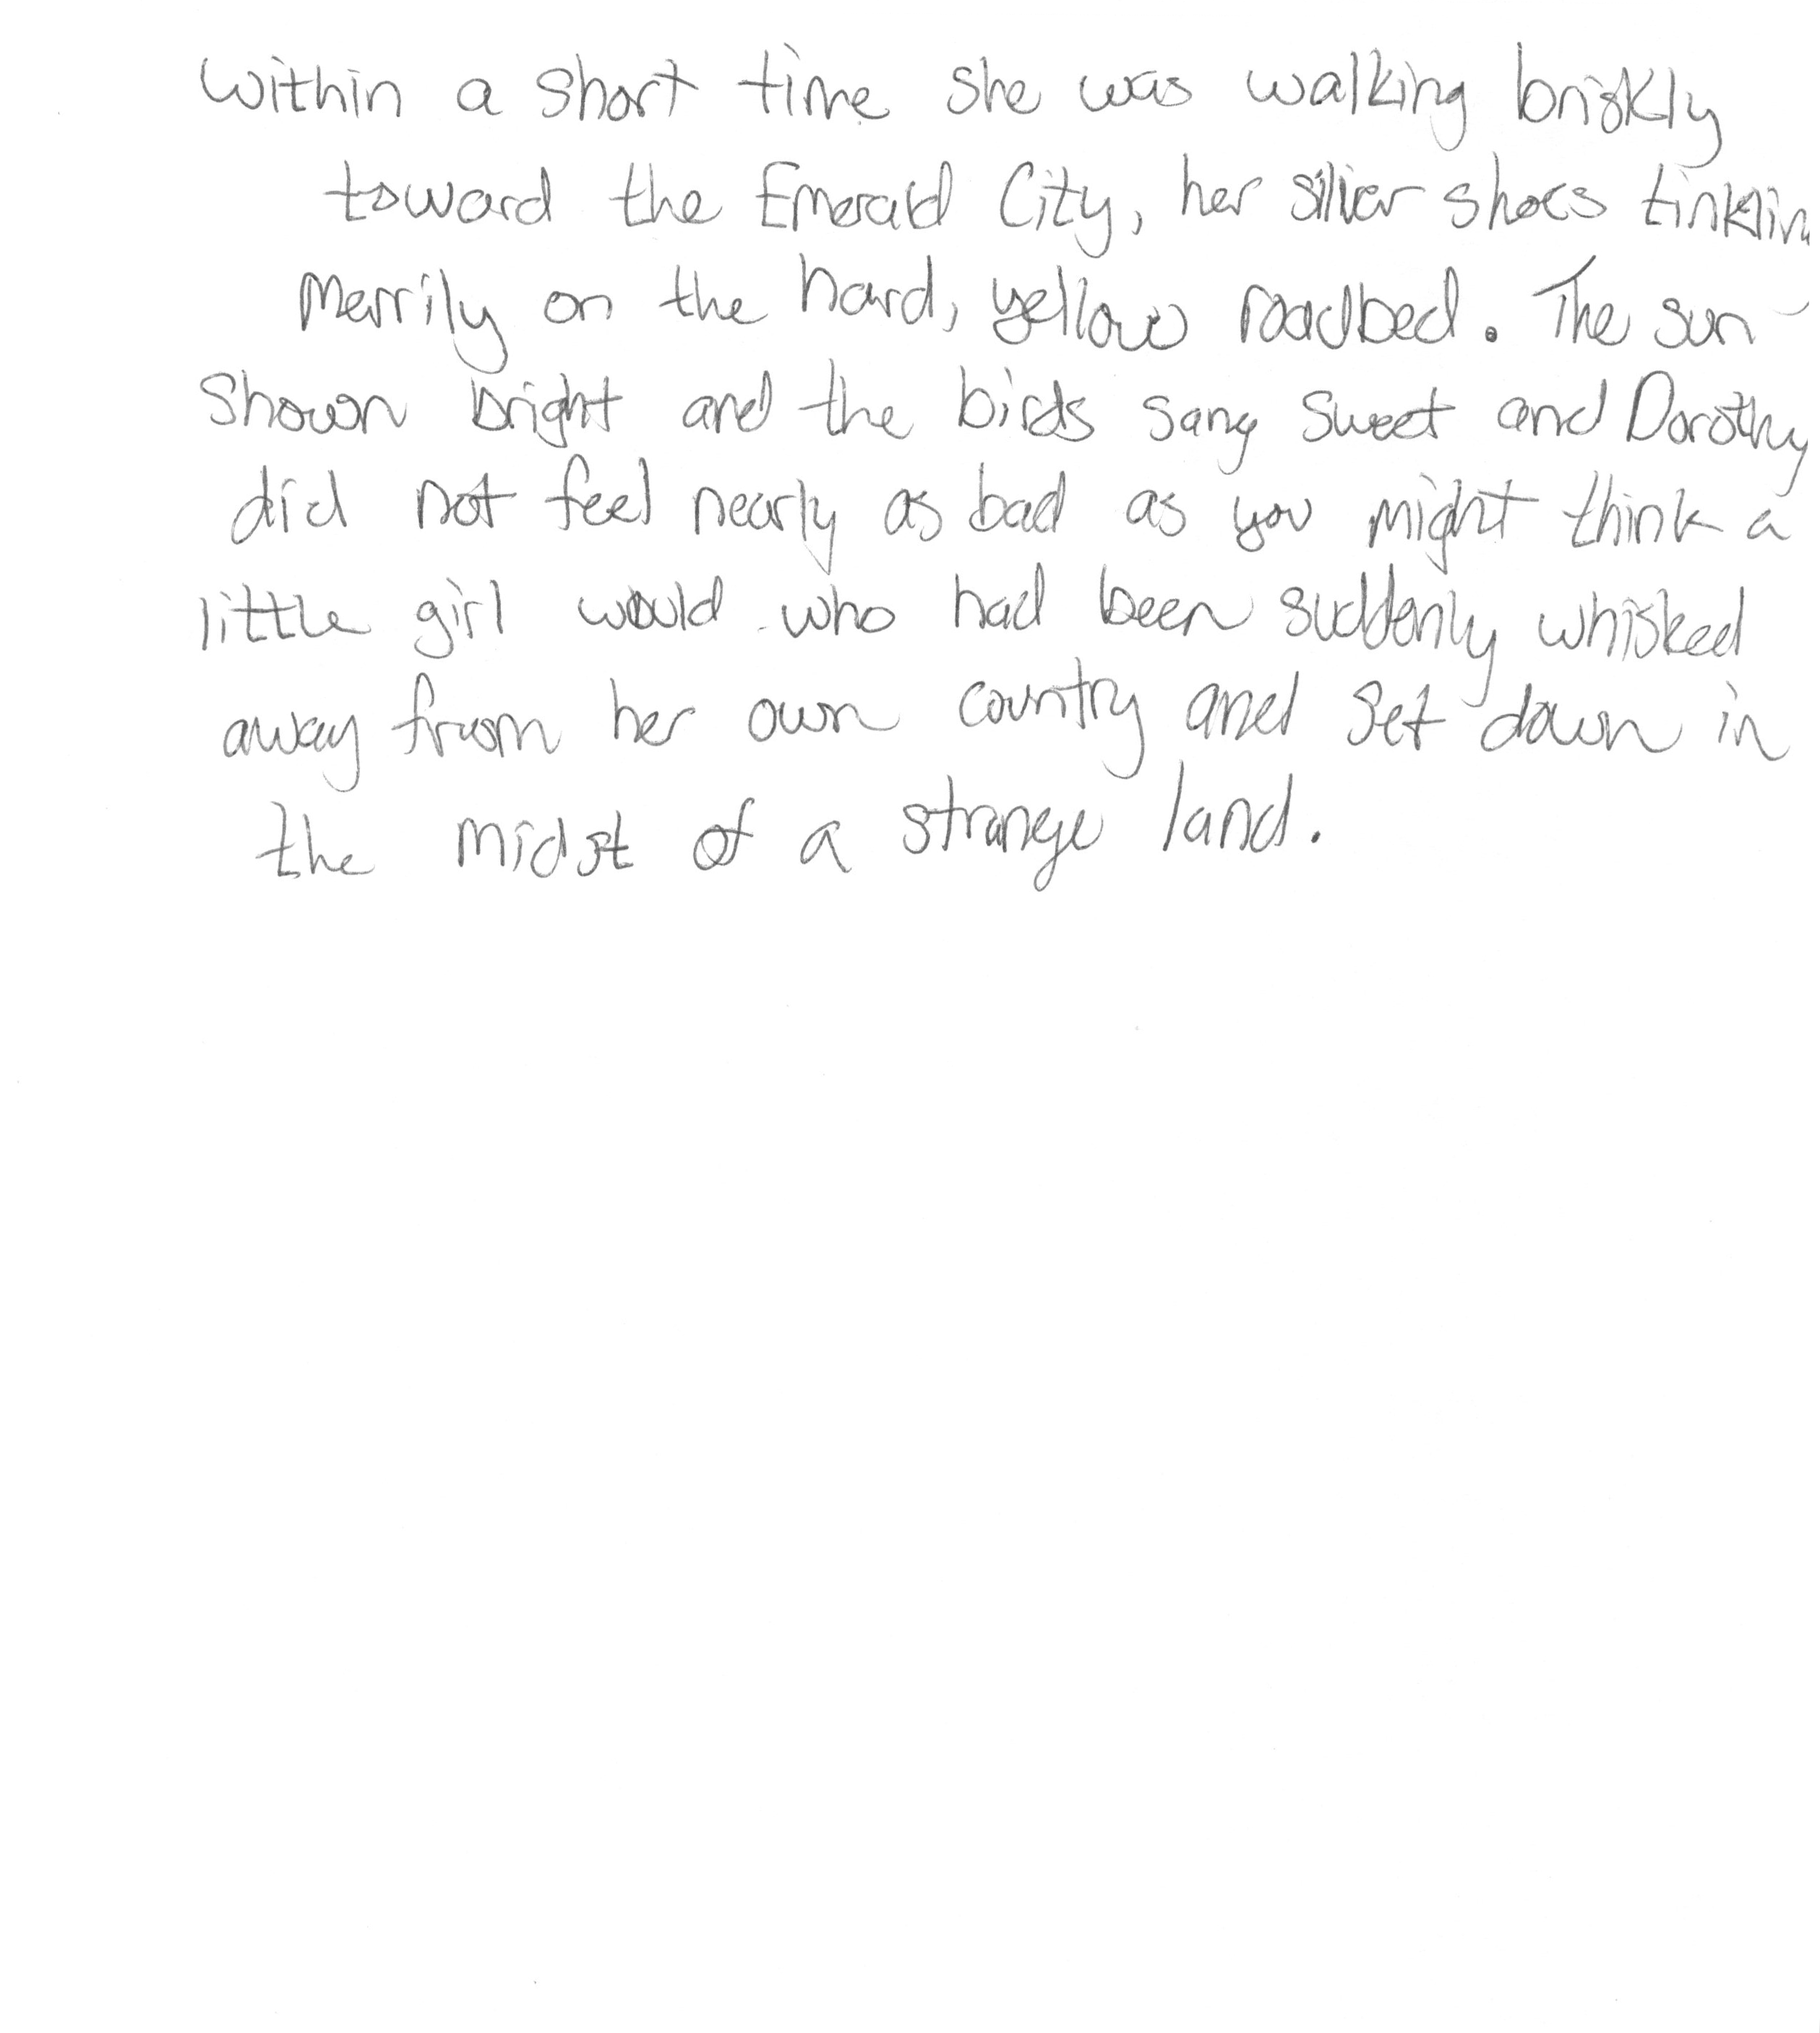 Within a short time she was walking briskly
toward the Emerald City, her silver shoes tinklin
merrily on the hard, yellow roadbed. The sun
shown bright and the birds sang sweet and Dorothy
did not feel nearly as bad as you might think a
little girl would who had been suddenly whisked
away from her own country and set down in
the midst of a strange land.